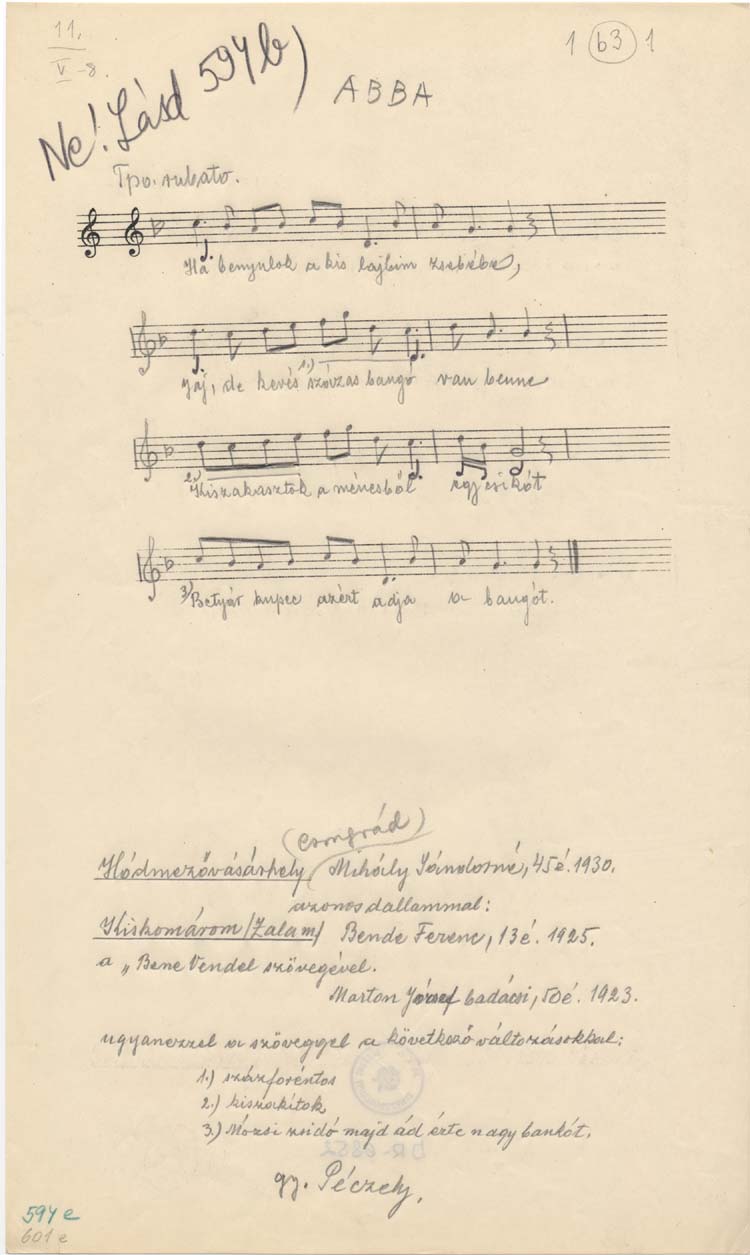 11.
V-8.
1 (63) 1
Ne! Lásd 594b)
ABBA
Tpo. rubato.
Ha benyulok a kis lajbim zsebébe,
Jaj, de kevés 1.) százas bangó van benne
2.) Kiszakasztok a ménesből egy csikót
3.) Betyár kupec azért adja a bangót.
(Csongrád)
Hódmezővásárhely Mihály Jánosné, 45é. 1930.
azonos dallammal:
Kiskomárom /Zala m/ Bende Ferenc, 13é. 1925.
a „Bene Vendel szövegével.
Marton József badácsi, 50é. 1923.
ugyanezzel a szöveggel a következő változásokkal:
1.) százforéntos
2.) kiszakítok
3.) Mózsi zsidó majd ád érte nagy bankót.
gy. Péczely.
594 e
601 e